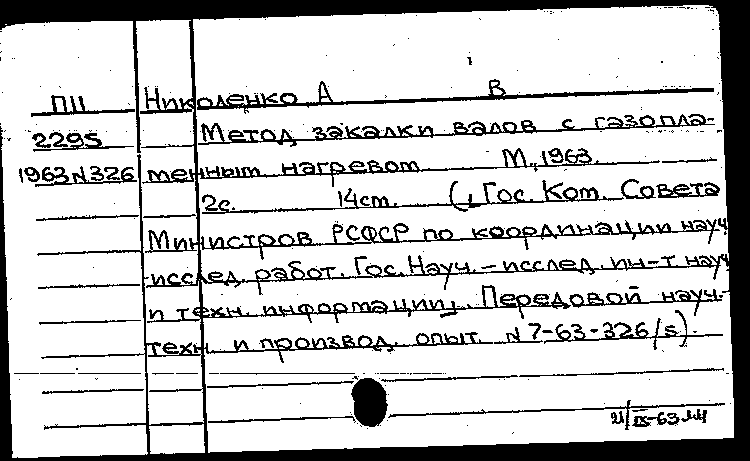 ПII Николенко А В
2295 Метод закалки валов с газопла-
1963 N 326 менным нагревом М., 1963.
2с. 14см. (Гос. Ком. Совета
Министров РСФСР по координации науч
-исслед. работ. Гос. Науч.-исслед. ин-т науч
и техн. информации. Передовой науч.-
техн. и производ. опыт. N 7-63-326/5).
21/IX-63